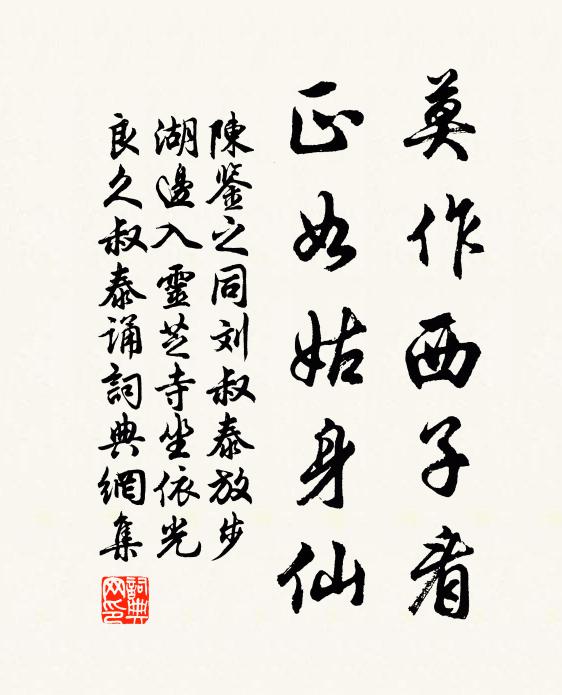 莫作西子看
正如姑身仙
陳鑒之同刘叔泰放步
湖邊入靈芝寺坐依光
良久叔泰誦詞典網集
詞典
网印